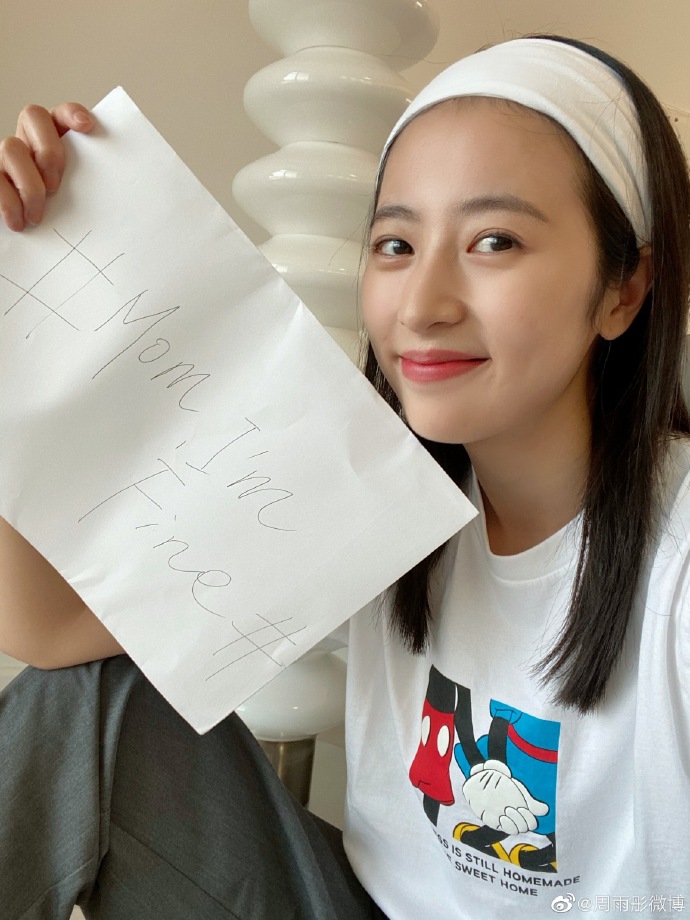 #Mom
,I'm
Fine#
SS IS STILL HOMEMADE
SWEET HOME
@周雨彤微博